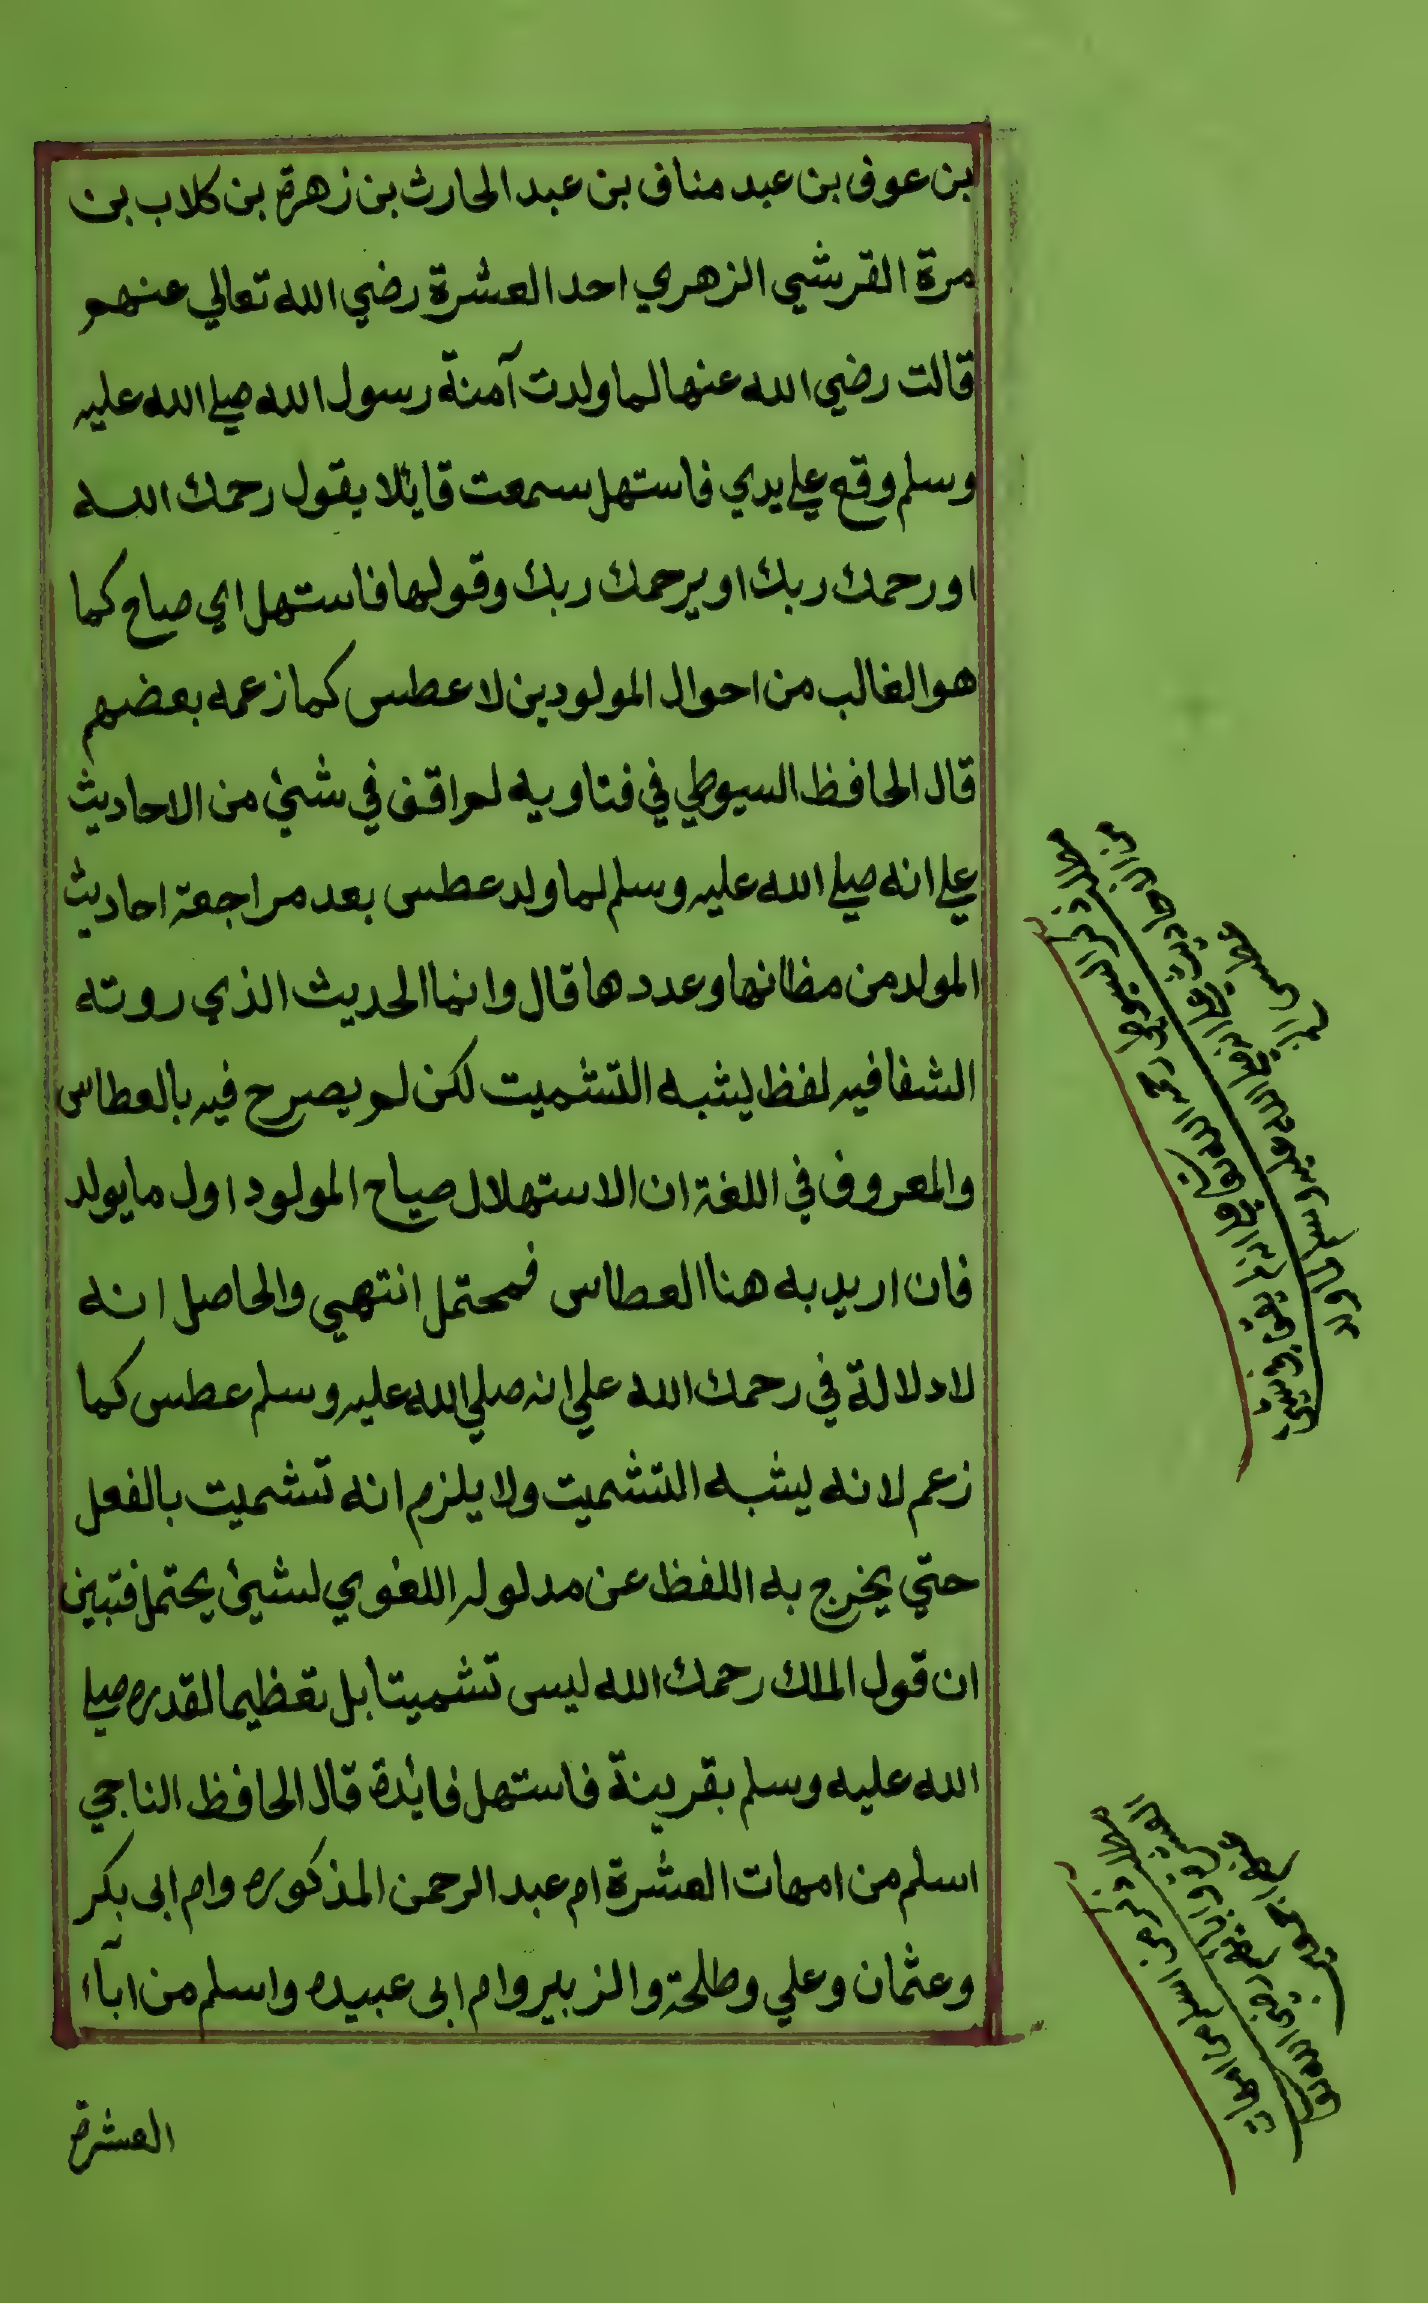 بن عوف بن عبد مناف بن عبد الحارث بن زهرة بن كلاب بن
مرة القرشي الزهري احد العشرة رضي الله تعالي عنهم
قالت رضي الله عنها لما ولدت آمنة رسول الله صلي الله عليه
وسلم وقع علي يدي فاستهل سمعت قائلا يقول رحمك الله
او رحمك ربك او يرحمك ربك وقولها فاستهل اي صاح كما
هو الغالب من احوال المولودين لا عطس كما زعمه بعضهم
قال الحافظ السيوطي في فتاويه لم اقف في شيئ من الاحاديث
علي انه صلي الله عليه وسلم لما ولد عطس بعد مراجعة احاديث
المولد من مظانها وعددها قال وانما الحديث الذي روته
الشفا فيه لفظ يشبه التشميت لكن لم يصرح فيه بالعطاس
والمعروف في اللغة ان الاستهلال صياح المولود اول ما يولد
فان اريد به هنا العطاس فمحتمل انتهي والحاصل انه
لا دلالة في رحمك الله علي انه صلي الله عليه وسلم عطس كما
زعم لانه يشبه التشميت ولا يلزم انه تشميت بالفعل
حتي يخرج به اللفظ عن مدلوله اللغوي لشيئ يحتمل فتبين
ان قول الملك رحمك الله ليس تشميتا بل تعظيما لقدره صلي
الله عليه وسلم بقرينة فاستهل فائدة قال الحافظ الناجي
اسلم من امهات العشرة ام عبد الرحمن المذكوره وام ابي بكر
وعثمان وعلي وطلحة والزبير وام ابي عبيده واسلم من ابآء
العشرة
مطلب ذكر السيوطي رحمه الله تعالي انه لم يقف في شيئ
من الاحاديث علي انه صلي الله عليه وسلم لما ولد
عطس
مطلب ذكر من اسلم من امهات
العشرة و ابائهم رضي الله تعالي
عنهم اجمعين